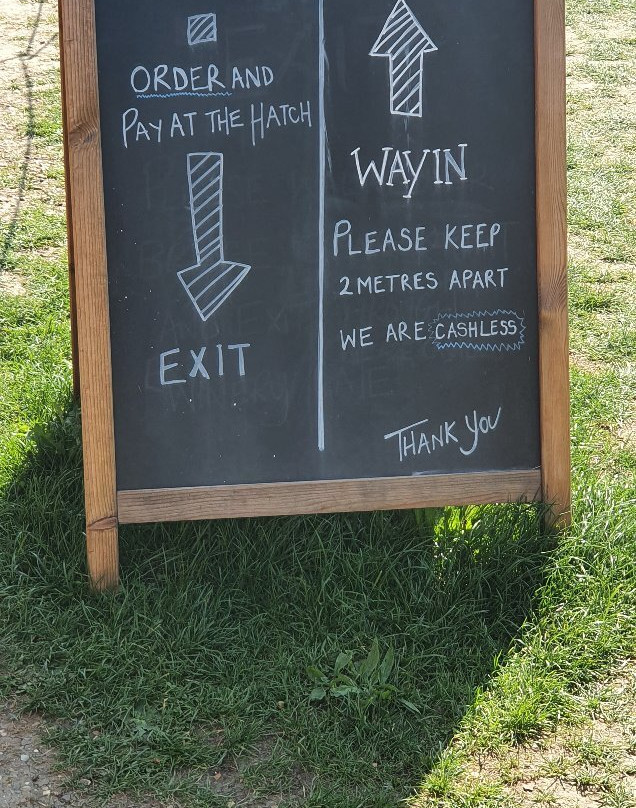 ORDER AND
PAY AT THE HATCH
EXIT
WAY IN
PLEASE KEEP
2 METRES APART
WE ARE CASHLESS
THANK YOU